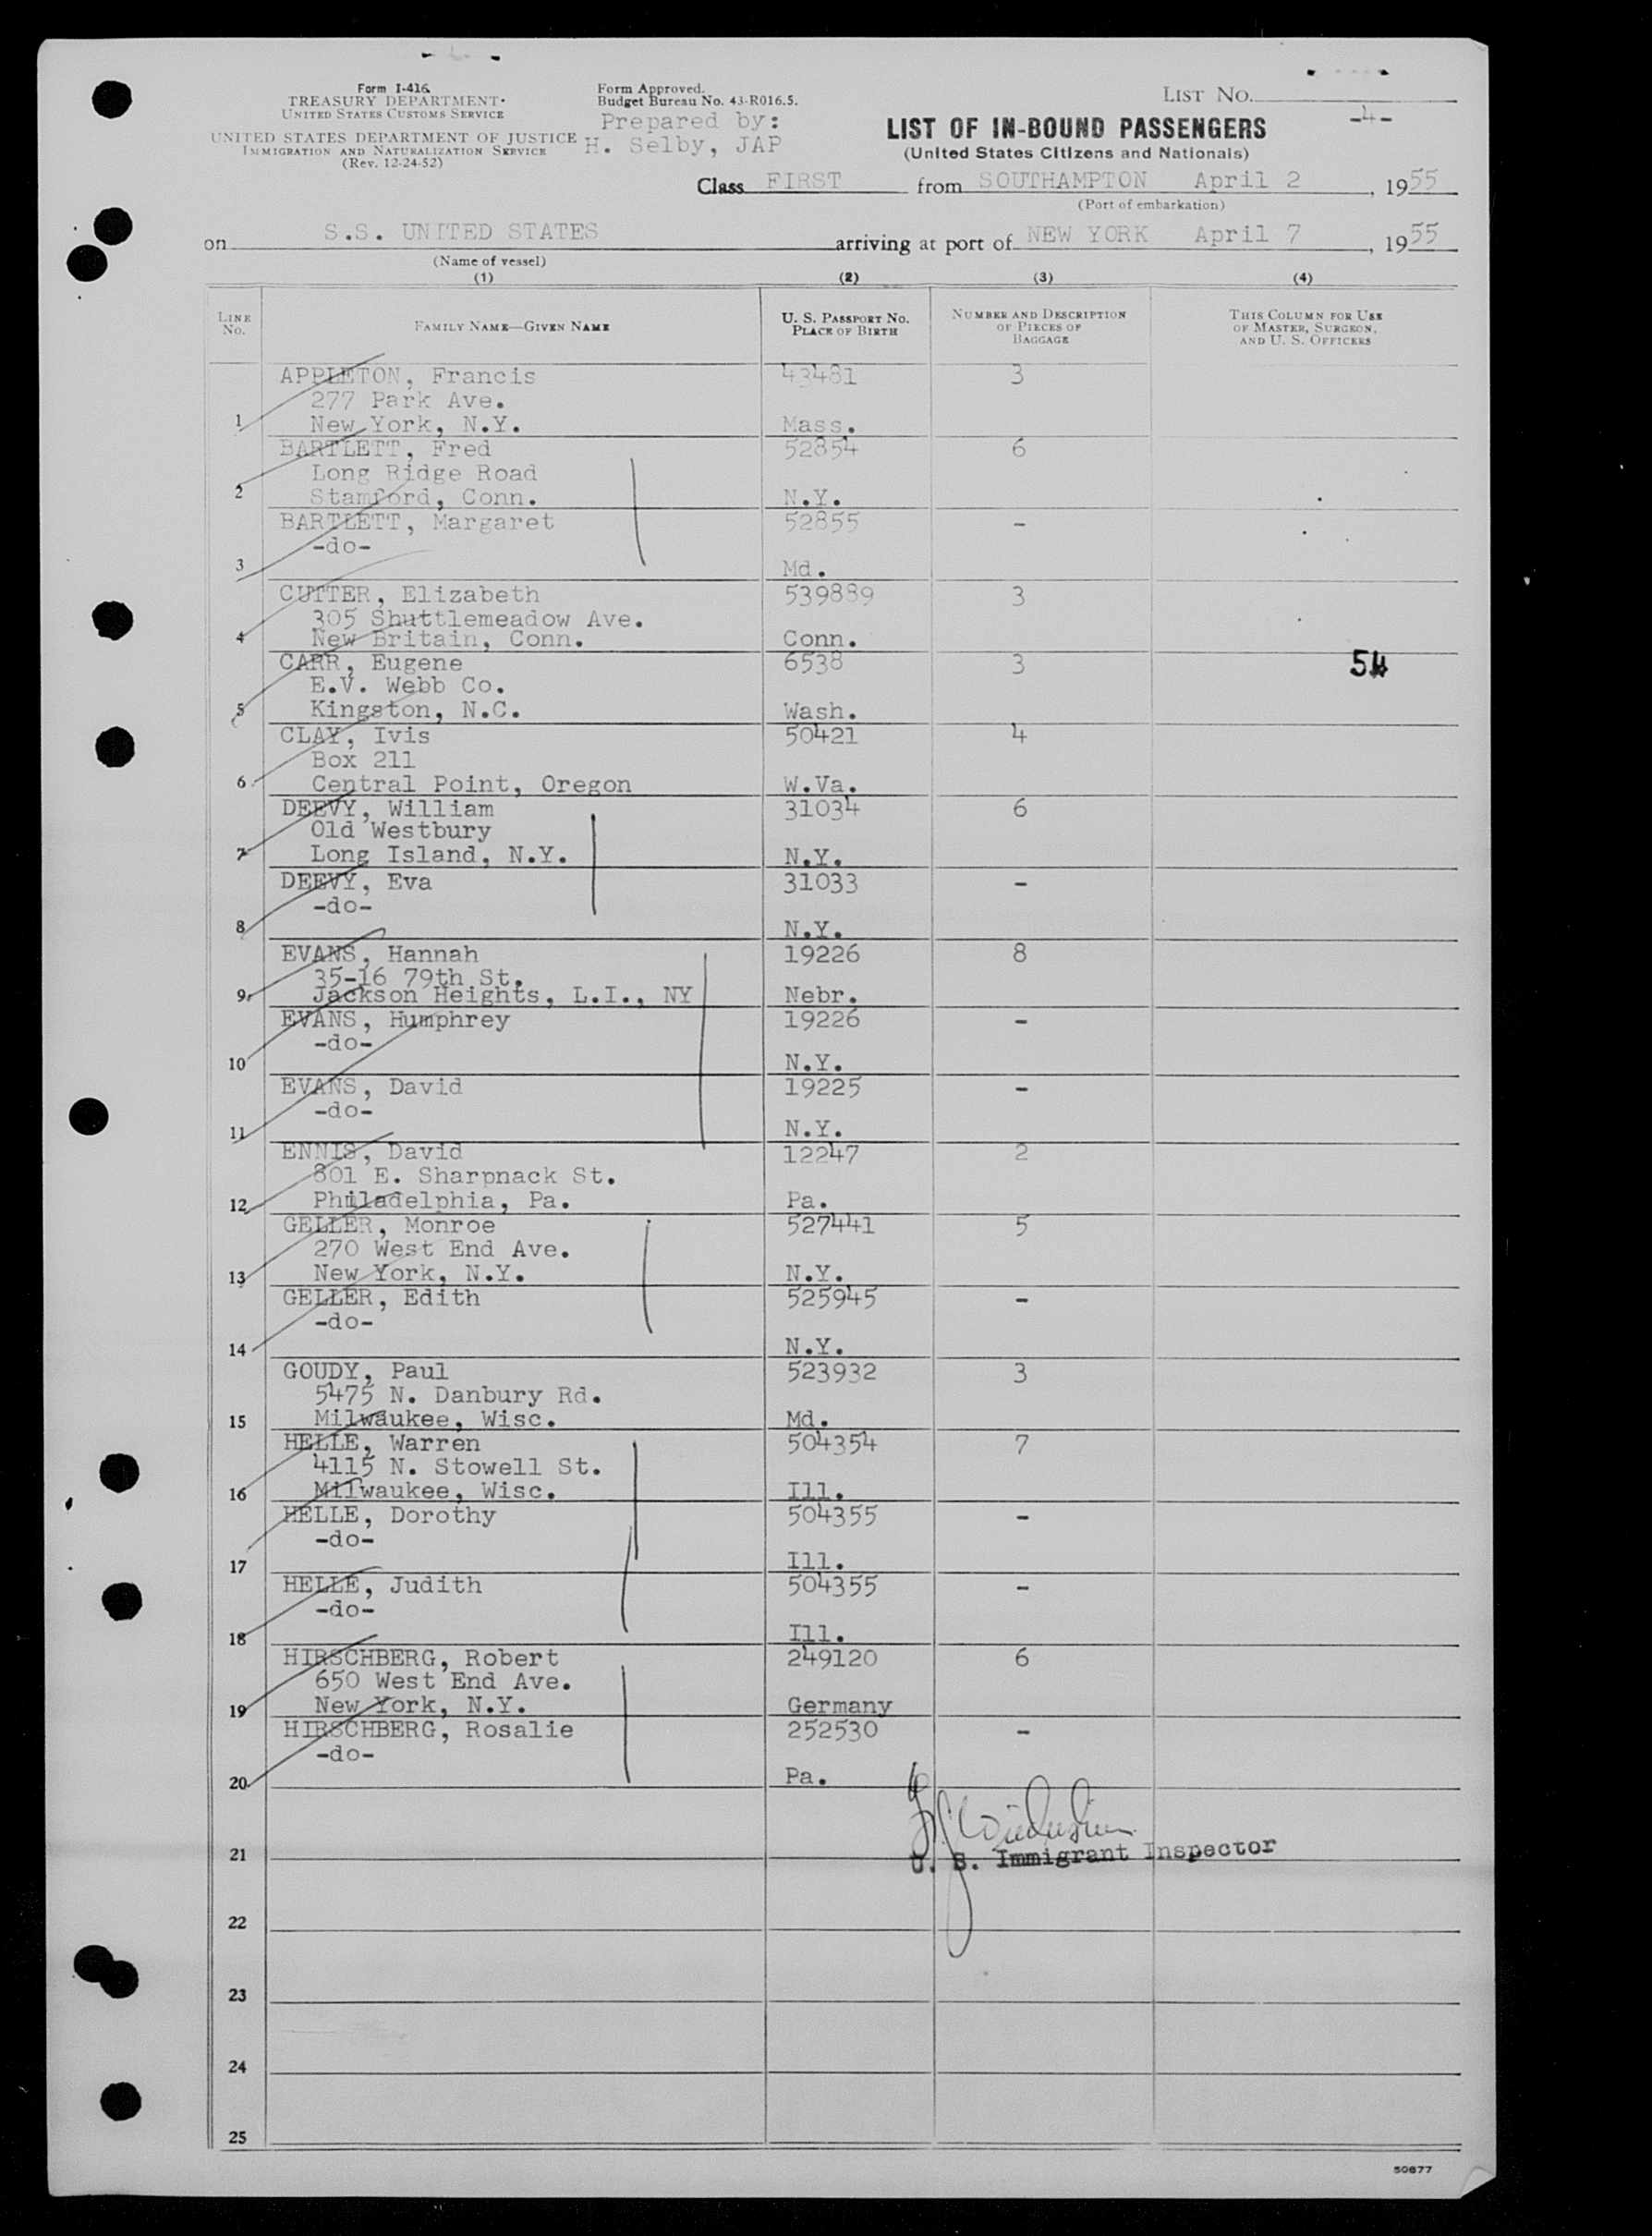 Form I-416
TREASURY DEPARTMENT
UNITED STATES CUSTOMS SERVICE
UNITED STATES DEPARTMENT OF JUSTICE
IMMIGRATION AND NATURALIZATION SERVICE
(Rev. 12-24-52)
Form Approved.
Budget Bureau No. 43-R016.5.
Prepared by:
H. Selby, JAP
LIST NO.
-4-
LIST OF IN-BOUND PASSENGERS
(United States Citizens and Nationals)
Class FIRST from SOUTHAMPTON April 2, 1955
(Port of embarkation)
on S.S. UNITED STATES arriving at port of NEW YORK April 7, 1955
(Name of vessel)
(1) (2) (3) (4)
LINE NO. FAMILY NAME—GIVEN NAME U. S. PASSPORT NO. PLACE OF BIRTH NUMBER AND DESCRIPTION OF PIECES OF BAGGAGE THIS COLUMN FOR USE OF MASTER, SURGEON, AND U. S. OFFICERS
APPLETON, Francis 43481 3
277 Park Ave.
1 New York, N.Y. Mass.
BARTLETT, Fred 52854 6
Long Ridge Road
2 Stamford, Conn. N.Y.
BARTLETT, Margaret 52855 -
-do-
3 Md.
CUTTER, Elizabeth 539889 3
305 Shuttlemeadow Ave.
4 New Britain, Conn. Conn.
CARR, Eugene 6538 3
E.V. Webb Co.
5 Kingston, N.C. Wash.
CLAY, Ivis 50421 4
Box 211
6 Central Point, Oregon W.Va.
DEEVY, William 31034 6
Old Westbury
7 Long Island, N.Y. N.Y.
DEEVY, Eva 31033 -
-do-
8 N.Y.
EVANS, Hannah 19226 8
35-16 79th St.
9 Jackson Heights, L.I., NY Nebr.
EVANS, Humphrey 19226 -
-do-
10 N.Y.
EVANS, David 19225 -
-do-
11 N.Y.
ENNIS, David 12247 2
801 E. Sharpnack St.
12 Philadelphia, Pa. Pa.
GELLER, Monroe 527441 5
270 West End Ave.
13 New York, N.Y. N.Y.
GELLER, Edith 525945 -
-do-
14 N.Y.
GOUDY, Paul 523932 3
5475 N. Danbury Rd.
15 Milwaukee, Wisc. Md.
HELLE, Warren 504354 7
4115 N. Stowell St.
16 Milwaukee, Wisc. Ill.
HELLE, Dorothy 504355 -
-do-
17 Ill.
HELLE, Judith 504355 -
-do-
18 Ill.
HIRSCHBERG, Robert 249120 6
650 West End Ave.
19 New York, N.Y. Germany
HIRSCHBERG, Rosalie 252530 -
-do-
20 Pa.
U. S. Immigrant Inspector
21
22
23
24
25
50677